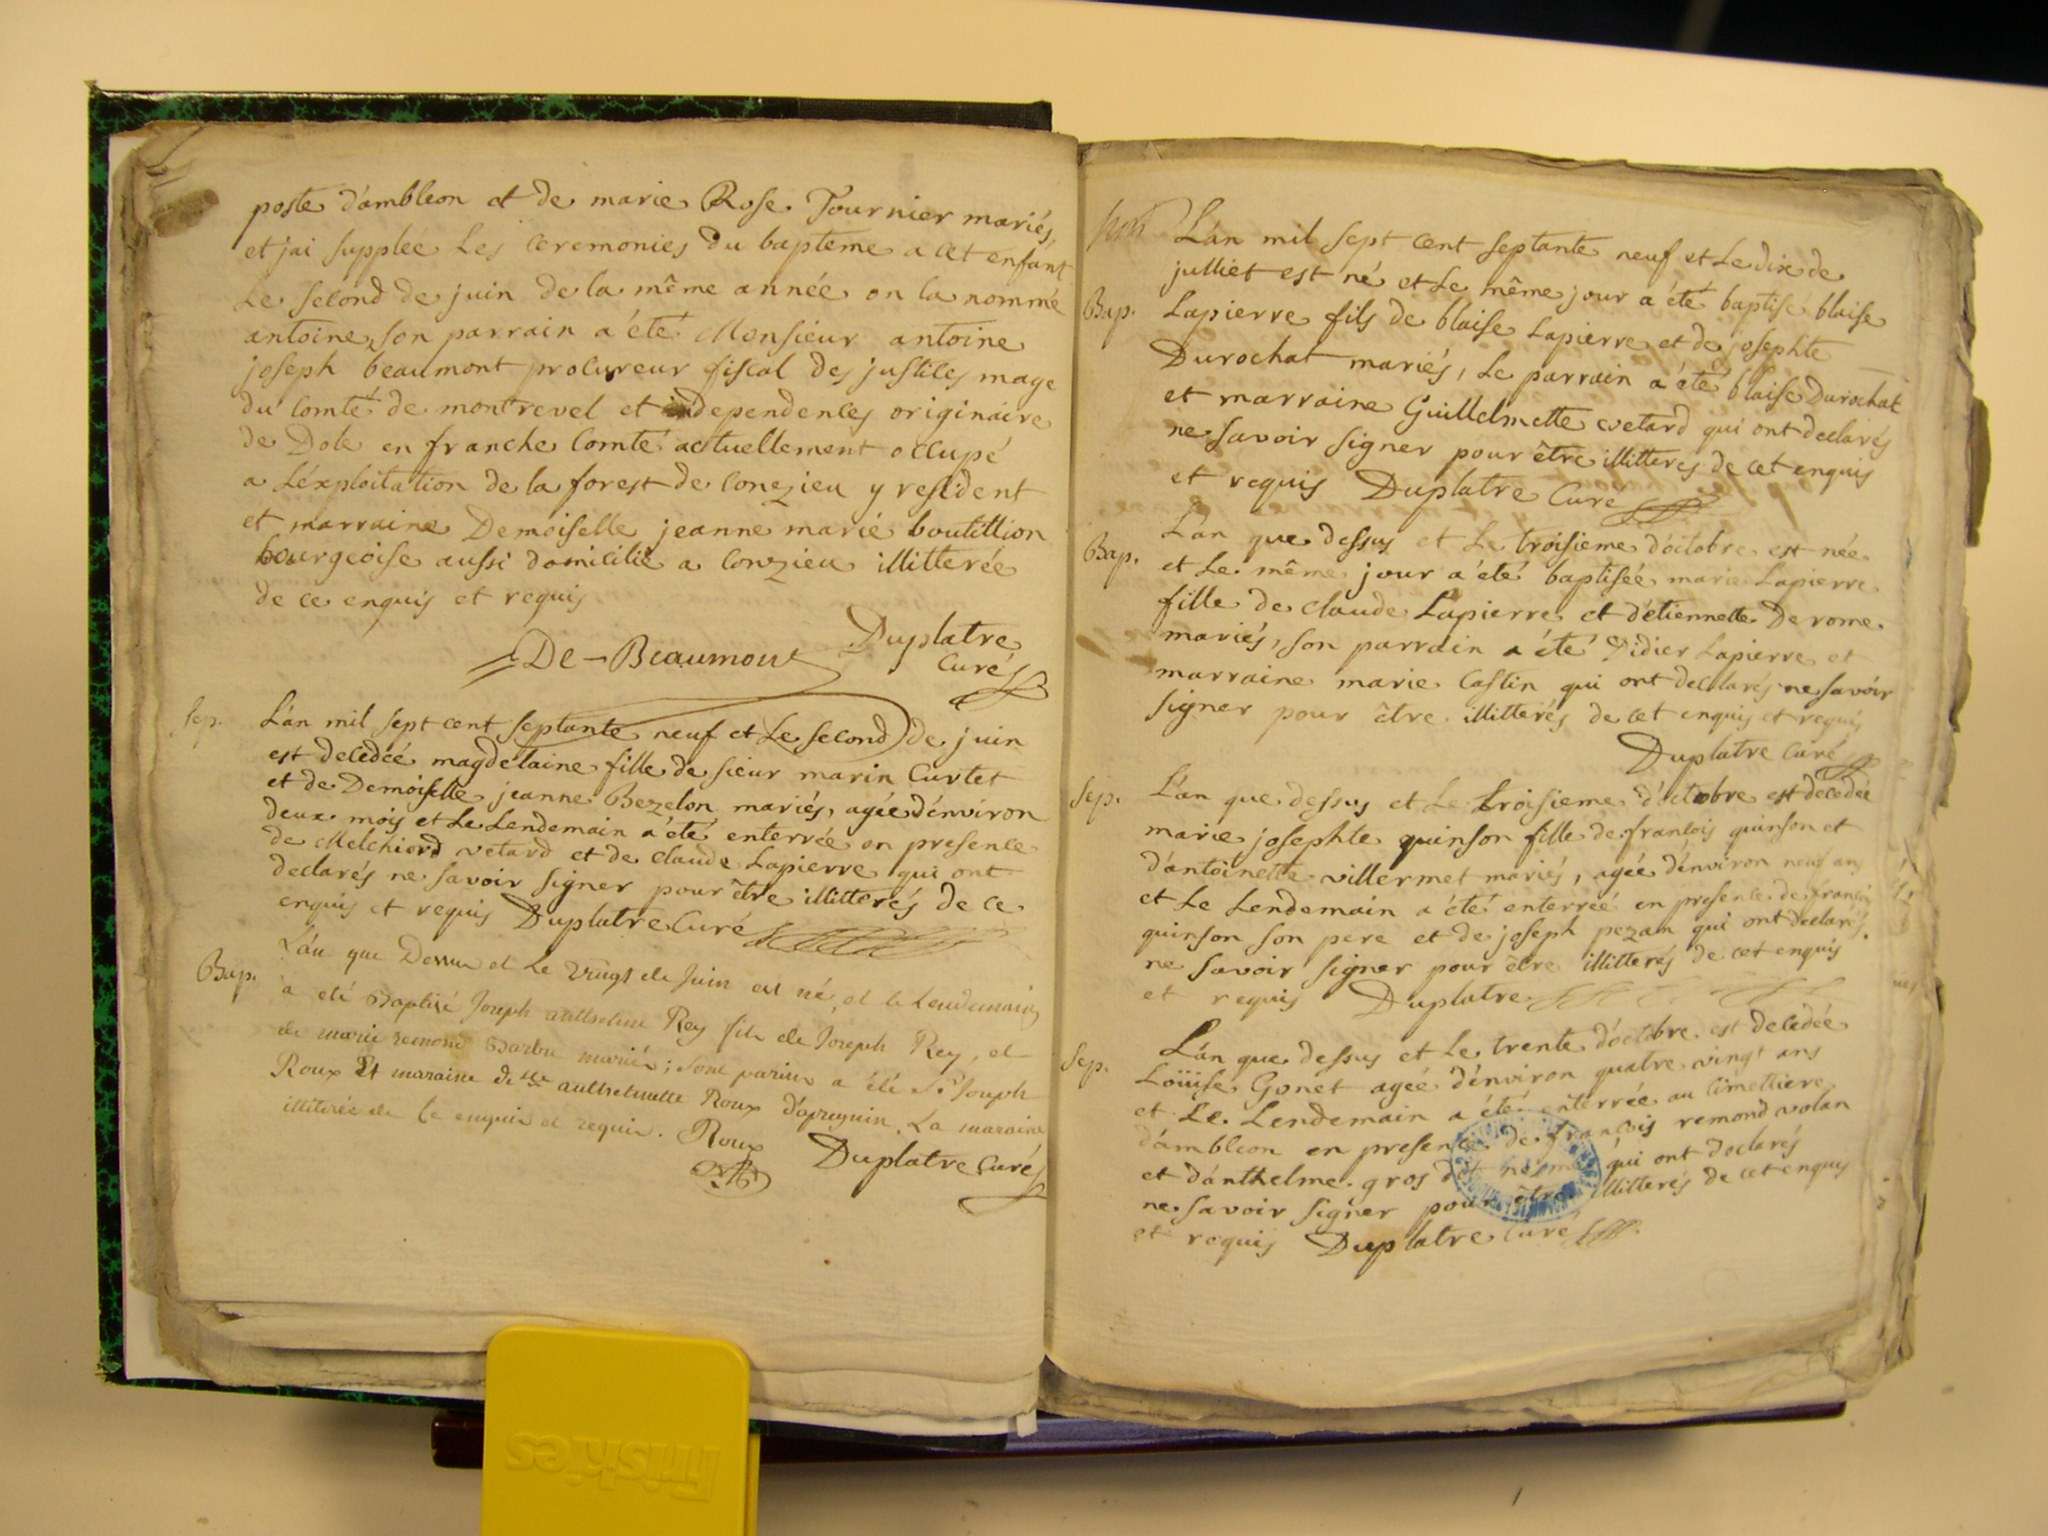 poste d'ambleon et de marie Rose Tournier mariés,
et jai supplée Les ceremonies du bapteme a cet enfant
Le second de juin de la même année on la nommé
antoine, son parrain a été Monsieur antoine
joseph beaumont procureur fiscal des justices mage
du Comté de montrevel et independences originaire
de Dole en franche Comté actuellement occupé
a L'éxploitation de la forest de Conezieu y resident
et marraine Demoiselle jeanne marie boutillion
bourgeoise aussi domicilié a Conzieu illitterée
de ce enquis et requis
De-Beaumont Duplatre
Curé
Sep. L'an mil sept cent septante neuf et Le second de juin
est decedée magdelaine fille de sieur marin Curtet
et de Demoiselle jeanne Bezelon mariés, agée d'environ
deux mois et Le Lendemain a été enterrée en presence
de Melchiord vetard et de Claude Lapierre qui ont
declarés ne savoir signer pour être illitterés de ce
enquis et requis Duplatre Curé
Bap. L'an que Dessus et Le vingt de Juin est né, et le Lendemain
a eté Baptisé Joseph anthelme Rey fils de Joseph Rey, et
de marie remond Barbu mariés; Son parain a été Sr Joseph
Roux Et maraine delle anthelmette Roux d'apregnin. La maraine
illiterée de Ce enquise et requise. Roux
Duplatre Curé
L'an mil sept cent septante neuf et Le dix de
julliet est né et Le même jour a été baptisé blaise
Bap. Lapierre fils de blaise Lapierre et de josephte
Durochat mariés, Le parrain a été blaise Durochat
et marraine Guillelmette vetard qui ont declarés
ne savoir signer pour être illitteres de cet enquis
et requis Duplatre Curé
L'an que dessus et Le troisieme d'octobre est née
Bap. et Le même jour a été baptisée marie Lapierre
fille de Claude Lapierre et d'étiennette Derome
mariés, son parrain a été Didier Lapierre et
marraine marie Castin qui ont declarés ne savoir
signer pour être illitterés de cet enquis et requis
Duplatre Curé
Sep. L'an que dessus et Le troisieme d'octobre est decedée
marie josephte quinson fille de francois quinson et
d'antoinette villermet mariés, agée d'environ neuf ans
et Le Lendemain a été enterrée en presence de francois
quinson son pere et de joseph pezan qui ont declarés
ne savoir signer pour être illitterés de cet enquis
et requis Duplatre
Sep. L'an que dessus et Le trente d'octobre est decedée
Loüise Gonet ageé d'environ quatre vingt ans
et Le Lendemain a été enterrée au Cimettiere
d'ambleon en presence de francois remond volan
et d'anthelme gros qui ont declarés
ne savoir signer pour être illitterés de cet enquis
et requis Duplatre Curé
Friskies